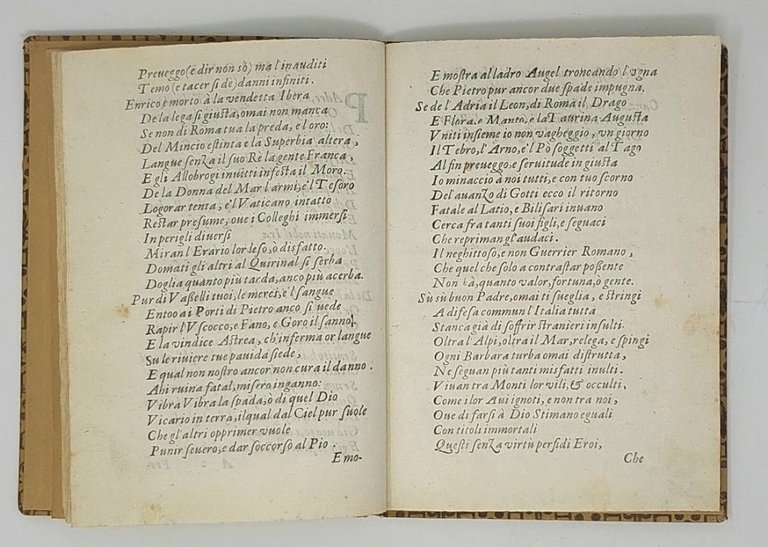 Preueggo (è dir nón sò) ma l'inauditi
Temo (e tacer si dè) danni infiniti.
Enrico è morto à la vendetta Ibera
De la lega si giusta, omai non manca
Se non di Roma tua la preda, e l'oro:
Del Mincio estinta e la Superbia altera,
Langue senza il suo Rè la gente Franca,
E gli Allobrogi inuitti infesta il Moro.
De la Donna del Mar l'armi, e'l Tesoro
Logorar tenta, e'l Vaticano intatto
Restar presume, oue i Colleghi immersi
In perigli diuersi
Miran l'Erario lor leso, ò disfatto.
Domati gli altri al Quirinal si serba
Doglia quanto più tarda, anco più acerba.
Pur di Vaßelli tuoi, le merci, e'l sangue
Entoo a i Porti di Pietro anco si uede
Rapir l'Vscocco, e Fano, e Goro il sanno,
E la vindice Astrea, ch'inferma or langue
Su le riuiere tue pauida siede,
E qual non nostro ancor non cura il danno.
Ahi ruina fatal, misero inganno:
Vibra Vibra la spada, ò di quel Dio
Vicario in terra, il qual dal Ciel pur suole
Che gl'altri opprimer vuole
Punir seuero, e dar soccorso al Pio.
E mo-
E mostra al ladro Augel troncando l'vgna
Che Pietro pur ancor due spade impugna.
Se de l'Adria il Leon, di Roma il Drago
E Flora, e Manto, e la Taurina Augusta
Vniti insieme io non vagheggio, vn giorno
Il Tebro, l'Arno, e'l Pò soggetti al Tago
Al fin preueggo, e seruitude ingiusta
Io minaccio à noi tutti, e con tuo scorno
De l'auanzo di Gotti ecco il ritorno
Fatale al Latio, e Bilisari inuano
Cerca fra tanti suoi figli, e seguaci
Che repriman gl'audaci.
Il neghittoso, e non Guerrier Romano,
Che quel che solo a contrastar poßente
Non hà, quanto valor, fortuna, o gente.
Sù sù buon Padre, omai ti sueglia, e stringi
A difesa commun l'Italia tutta
Stanca già di soffrir stranieri insulti.
Oltra l'Alpi, oltra il Mar, relega, e spingi
Ogni Barbara turba omai distrutta,
Ne seguan più tanti misfatti inulti.
Viuan tra Monti lor vili, & occulti,
Come i lor Aui ignoti, e non tra noi,
Oue di farsi à Dio Stimano eguali
Con titoli immortali
Questi senza virtù perfidi Eroi,
Che